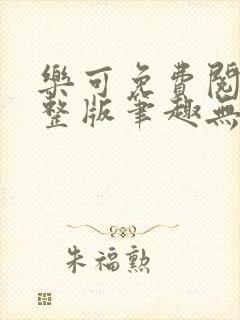 樂可免費閱
整版筆趣無
朱福勲